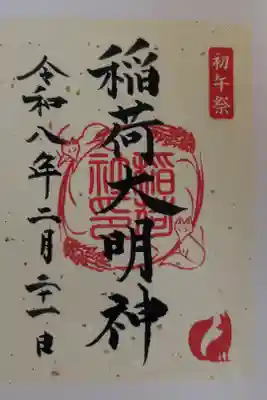 初午祭
稲荷大明神
稲荷
神璽
令和八年二月二十一日